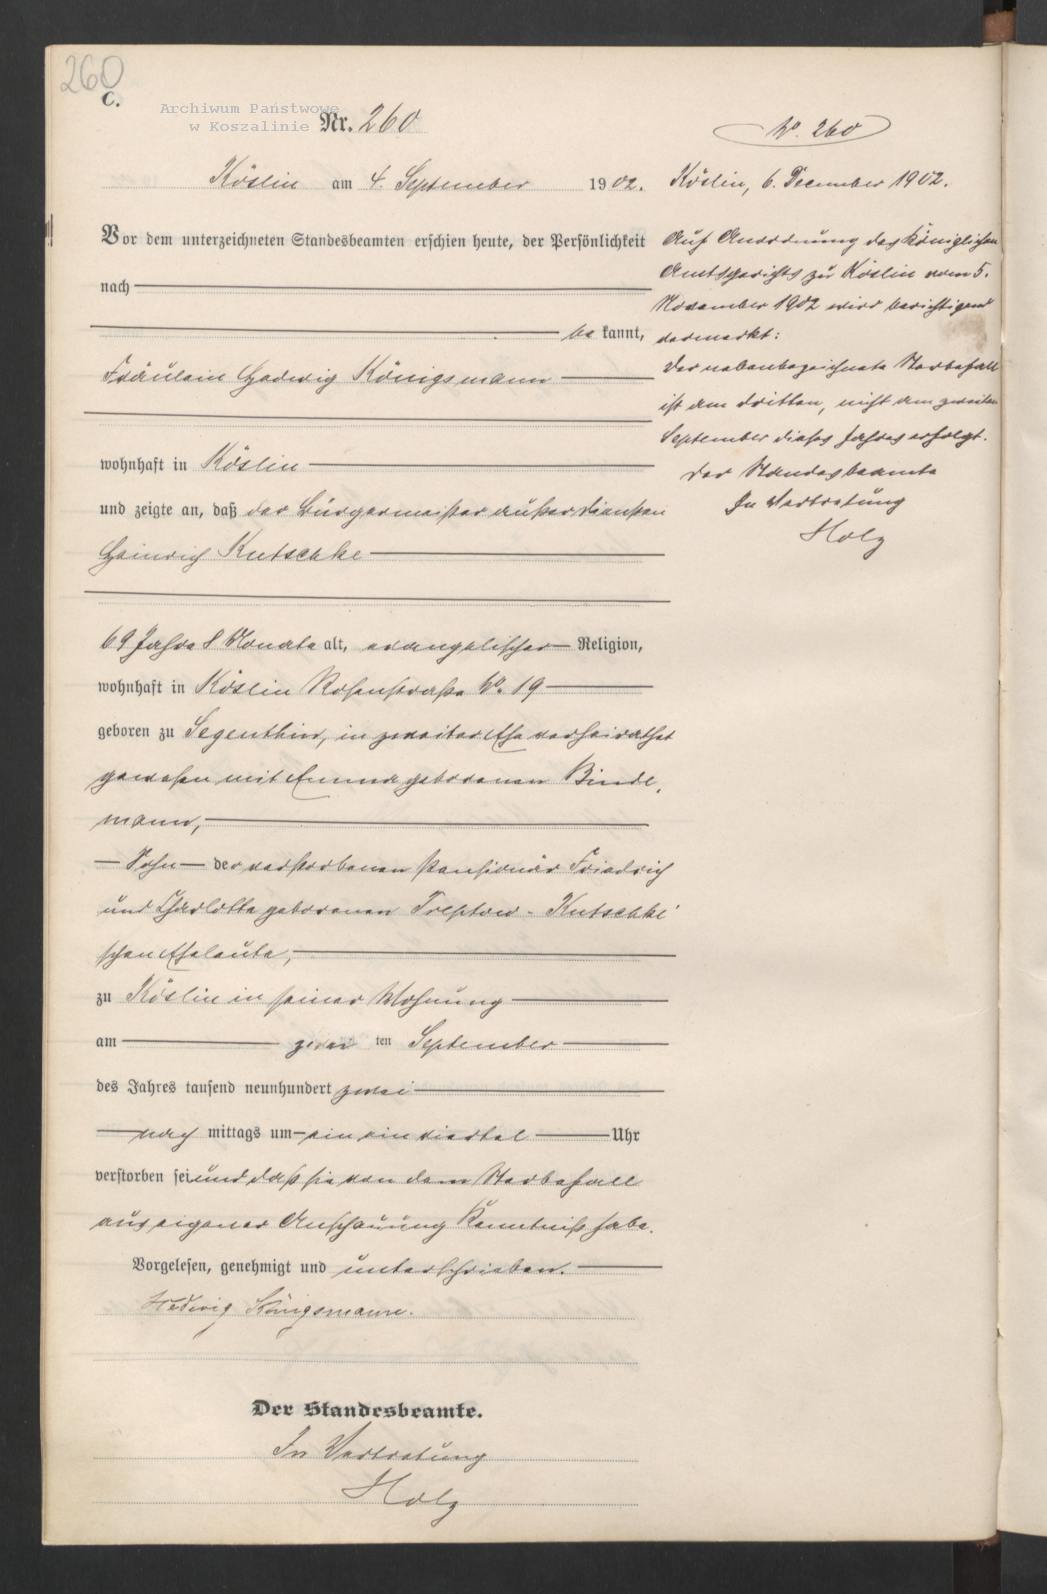 260
C.
Archiwum Państwowe
w Koszalinie
Nr. 260
Köslin am 4. September 1902.
Vor dem unterzeichneten Standesbeamten erschien heute, der Persönlichkeit
nach
bekannt,
Fräulein Hedwig Königsmann
wohnhaft in Köslin
und zeigte an, daß der Bürgermeister außer Diensten
Heinrich Kutschke
69 Jahre 8 Monate alt, evangelischer Religion,
wohnhaft in Köslin Rosenstraße No. 19
geboren zu Segenthin, in zweiter Ehe verheirathet
gewesen mit Emma geborenen Binde,
mann,
Sohn der verstorbenen Pensionär Friedrich
und Charlotte geborenen Treptow-Kutschke'
schen Eheleute,
zu Köslin in seiner Wohnung
am zweiten September
des Jahres tausend neunhundert zwei
nach mittags um ein ein viertel Uhr
verstorben sei und daß sie von dem Sterbefall
aus eigener Anschauung Kenntniß habe.
Vorgelesen, genehmigt und unterschrieben.
Hedwig Königsmann.
Der Standesbeamte.
In Vertretung
Holz
No. 260
Köslin, 6. December 1902.
Auf Anordnung des Königlichen
Amtsgerichts zu Köslin vom 5.
November 1902 wird berichtigend
vermerkt:
Der nebenbezeichnete Sterbefall
ist am dritten, nicht am zweiten
September dieses Jahres erfolgt.
Der Standesbeamte
In Vertretung
Holz